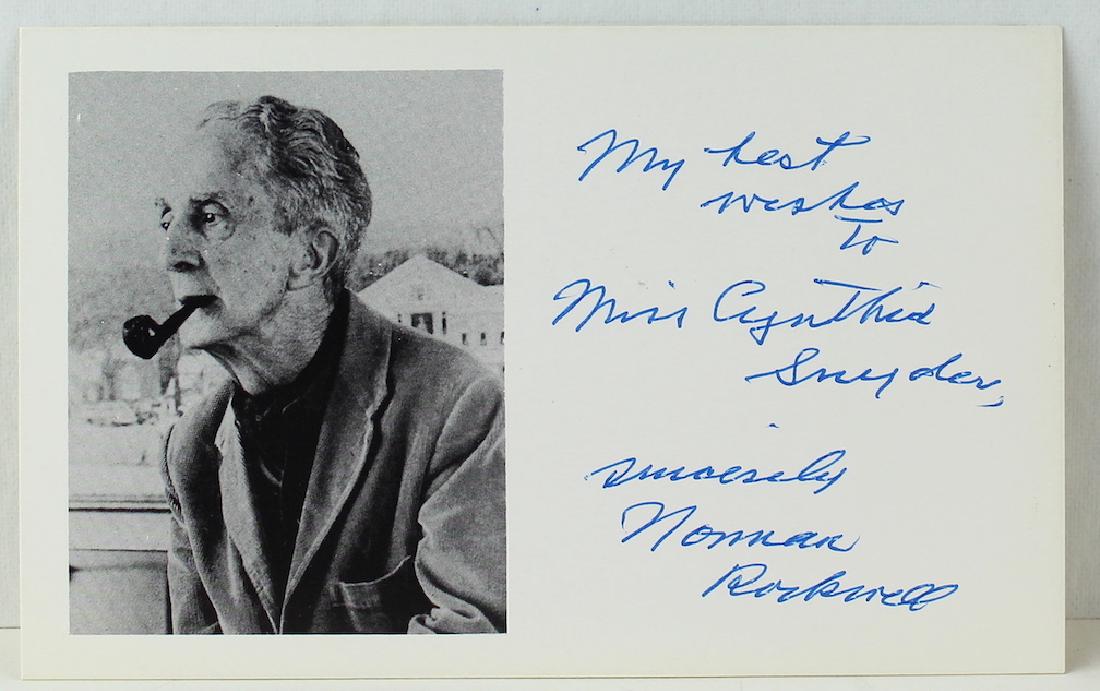 My best
wishes
To
Miss Cynthia
Snyder,
Sincerely
Norman
Rockwell